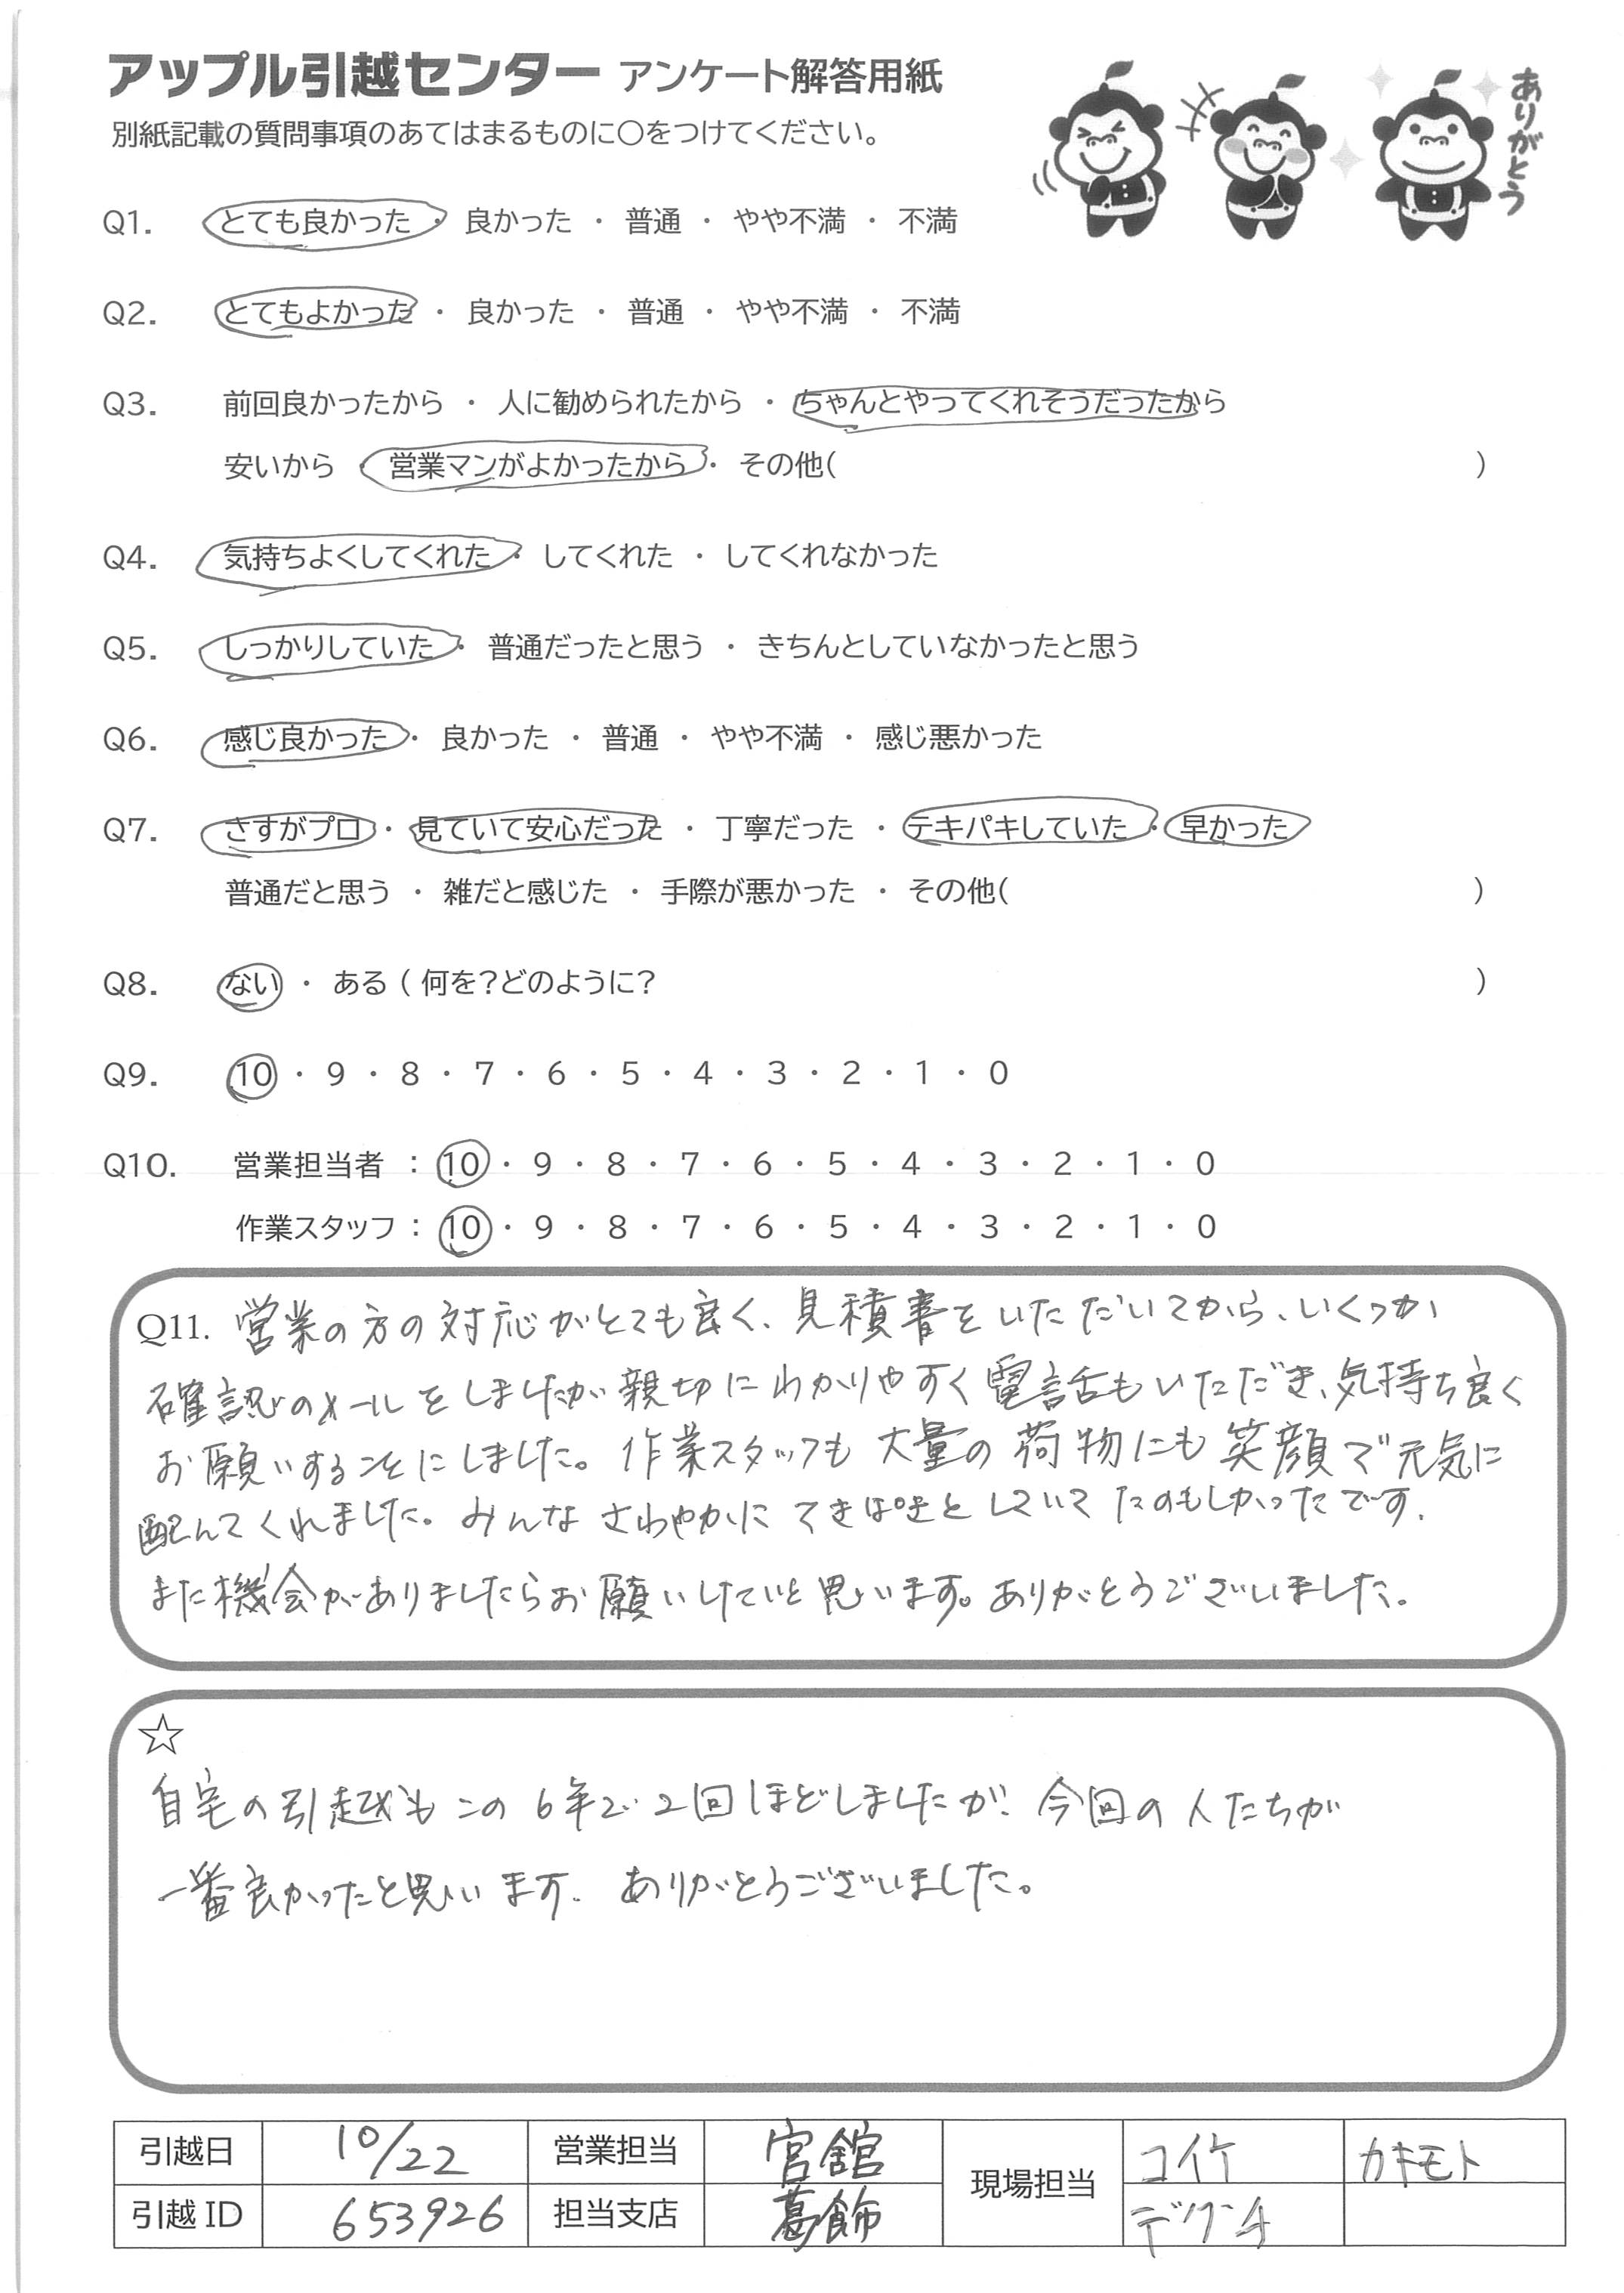 アップル引越センター アンケート解答用紙
ありがとう
別紙記載の質問事項のあてはまるものに○をつけてください。
Q1. とても良かった ・ 良かった ・ 普通 ・ やや不満 ・ 不満
Q2. とてもよかった ・ 良かった ・ 普通 ・ やや不満 ・ 不満
Q3. 前回良かったから ・ 人に勧められたから ・ ちゃんとやってくれそうだったから
安いから ・ 営業マンがよかったから ・ その他( )
Q4. 気持ちよくしてくれた ・ してくれた ・ してくれなかった
Q5. しっかりしていた ・ 普通だったと思う ・ きちんとしていなかったと思う
Q6. 感じ良かった ・ 良かった ・ 普通 ・ やや不満 ・ 感じ悪かった
Q7. さすがプロ ・ 見ていて安心だった ・ 丁寧だった ・ テキパキしていた ・ 早かった
普通だと思う ・ 雑だと感じた ・ 手際が悪かった ・ その他( )
Q8. ない ・ ある ( 何を?どのように? )
Q9. 10 ・ 9 ・ 8 ・ 7 ・ 6 ・ 5 ・ 4 ・ 3 ・ 2 ・ 1 ・ 0
Q10. 営業担当者 : 10 ・ 9 ・ 8 ・ 7 ・ 6 ・ 5 ・ 4 ・ 3 ・ 2 ・ 1 ・ 0
作業スタッフ : 10 ・ 9 ・ 8 ・ 7 ・ 6 ・ 5 ・ 4 ・ 3 ・ 2 ・ 1 ・ 0
Q11. 営業の方の対応がとても良く、見積書をいただいてから、いくつか
確認のメールをしましたが親切にわかりやすく電話もいただき、気持ち良く
お願いすることにしました。作業スタッフも大量の荷物にも笑顔で元気に
配んでくれました。みんなさわやかにてきぱきとしていてたのもしかったです。
また機会がありましたらお願いしたいと思います。ありがとうございました。
☆
自宅の引越もこの6年で2回ほどしましたが、今回の人たちが
一番良かったと思います。ありがとうございました。
引越日 10/22 営業担当 宮舘 現場担当 コイケ カキモト
引越ID 653926 担当支店 葛飾